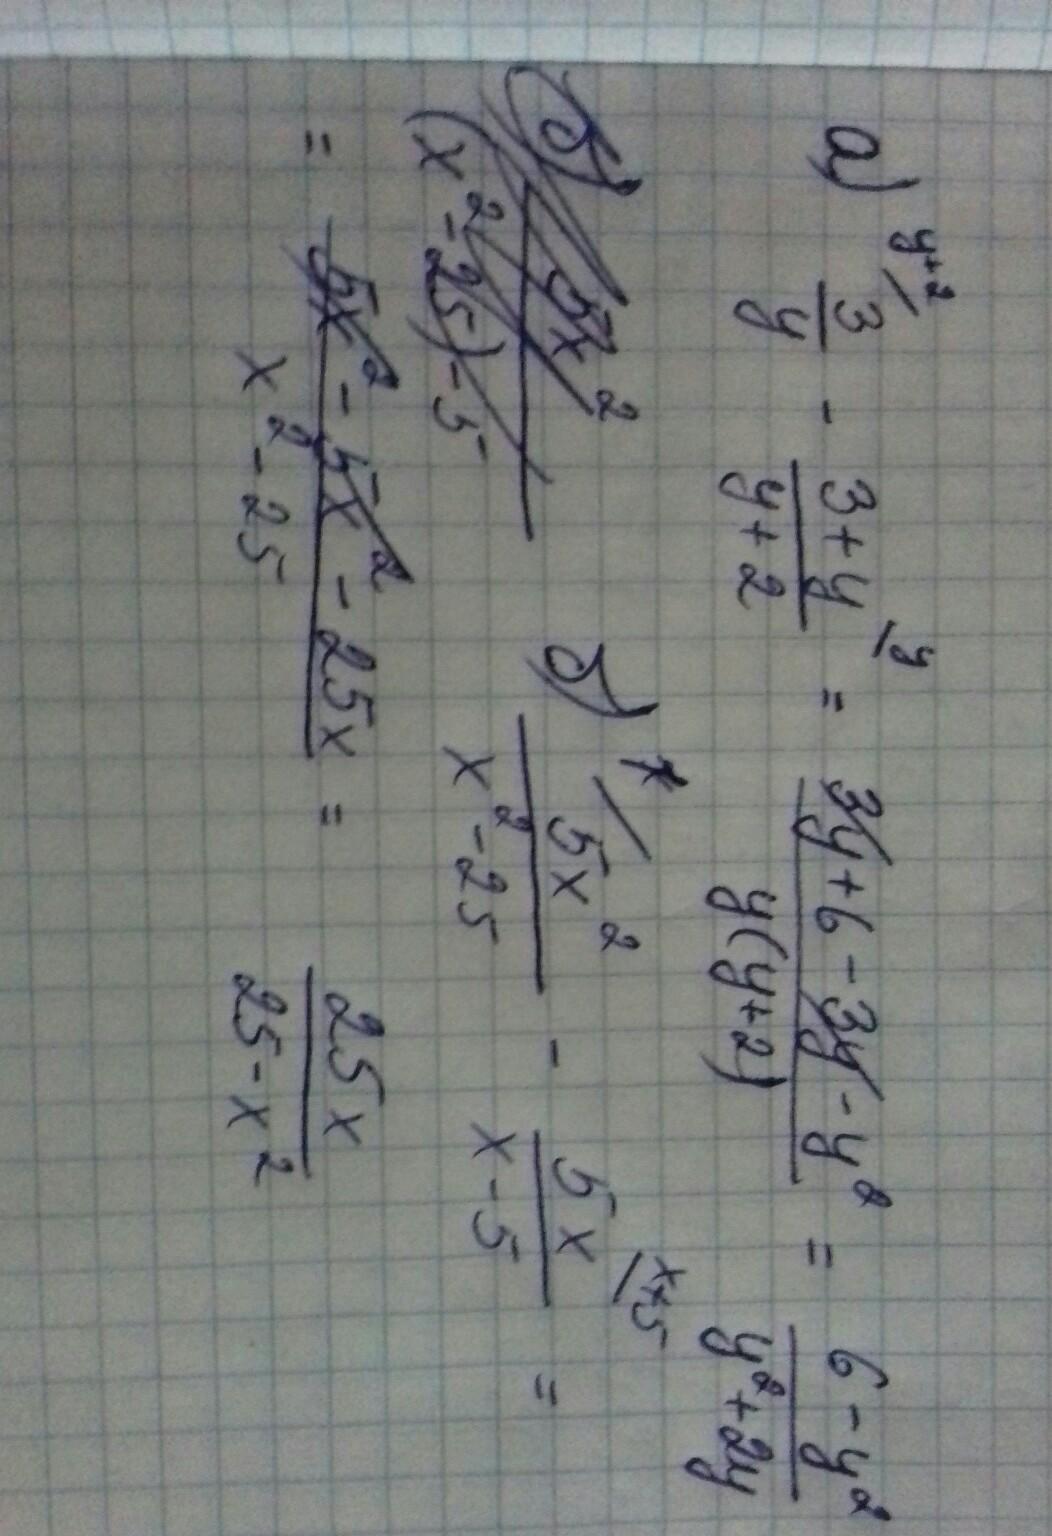 а) y+2/ 3/y - (3+y)/(y+2) \y = (3y+6-3y-y²)/(y(y+2)) = (6-y²)/(y²+2y)
б) 5x²/((x²-25)-5 б) /5x²/(x²-25) - 5x/(x-5) \x+5 =
= (5x²-5x²-25x)/(x²-25) = 25x/(25-x²)